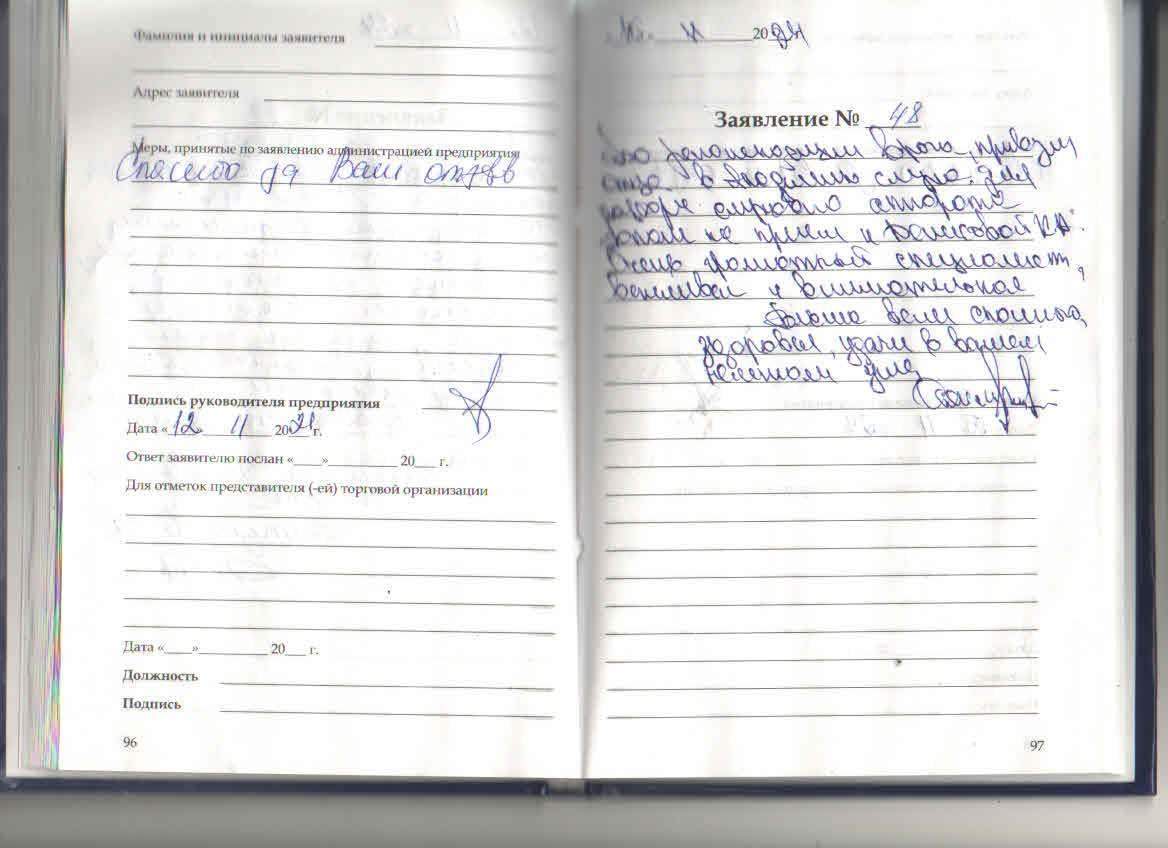 Фамилия и инициалы заявителя
Адрес заявителя
Меры, принятые по заявлению администрацией предприятия
Спасибо за Ваш отзыв
Подпись руководителя предприятия
Дата «12» 11 2021 г.
Ответ заявителю послан «____»__________ 20___ г.
Для отметок представителя (-ей) торговой организации
Дата «____»__________ 20___ г.
Должность
Подпись
96
20
Заявление № 48
По рекомендации врача, привезли
отца в Академию слуха. Для
подбора слухового аппарата
попали на прием к
Очень грамотный специалист,
вежливая и внимательная
Больше всем спасибо,
здоровья, удачи в вашем
нелегком деле
97